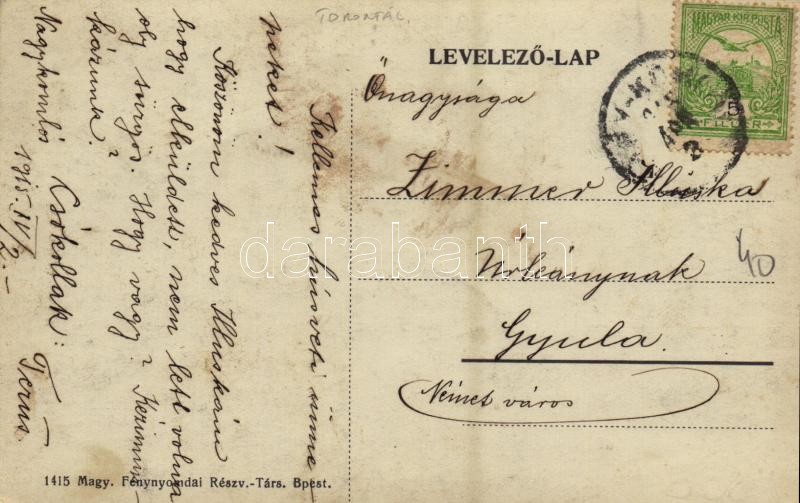 TORONTÁL.
LEVELEZŐ-LAP
MAGYAR KIR. POSTA
5
FILLÉR
Önagysága
Zimmer Illuska
Urleánynak
Gyula.
Német város
40
Kellemes húsvéti ünne-
peket!
Köszönöm kedves Illuskám
hogy elküldett, nem lett volna
oly sürgős. Hogy vagy?
kázunk.
Csókollak:
Terus.
Nagykomlós 1915. IV/2.-
1415 Magy. Fénynyomdai Részv.-Társ. Bpest.
darabanth